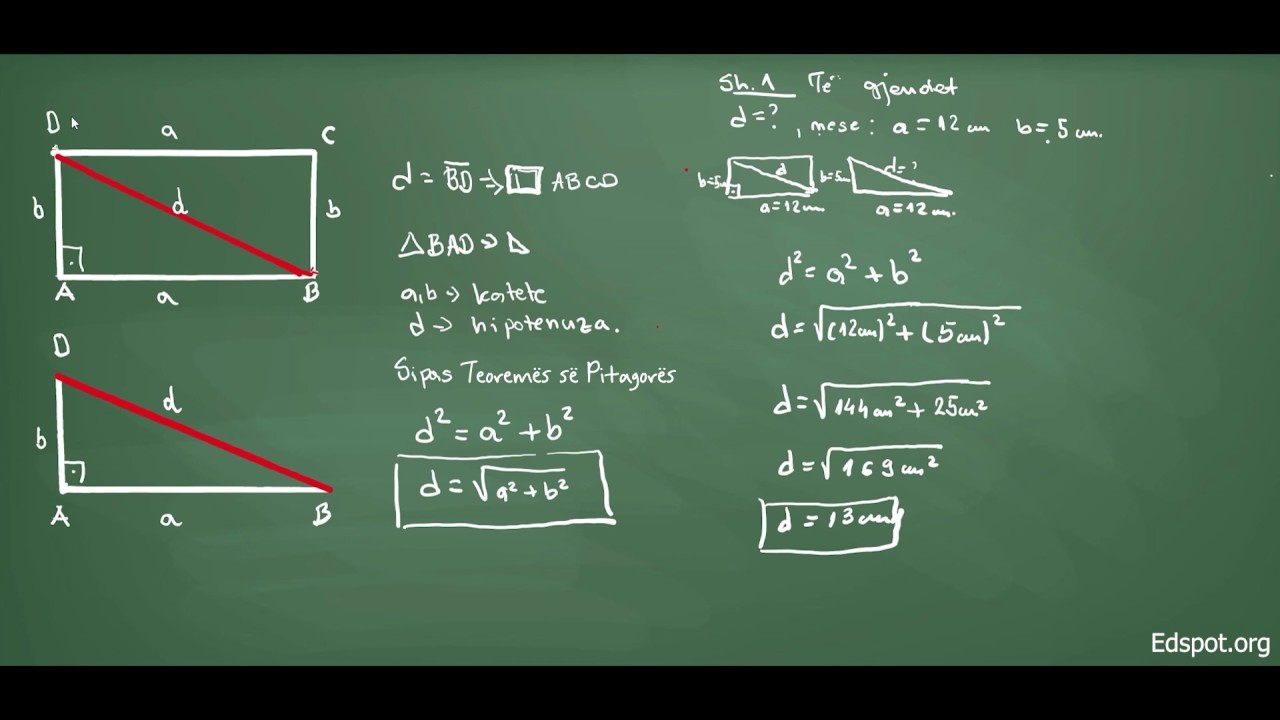 D a C
b d b
A a B
D
d
b
A a B
d = BD → ABCD
△BAD →
a,b → katete
d → hipotenuza.
Sipas Teoremës së Pitagorës
d² = a² + b²
d = √a² + b²
Sh.1 Të gjendet
d = ? , nese : a = 12 cm b = 5 cm.
b=5cm d b=5cm d=?
a=12cm a=12cm.
d² = a² + b²
d = √(12cm)² + (5cm)²
d = √144cm² + 25cm²
d = √169cm²
d = 13cm
Edspot.org